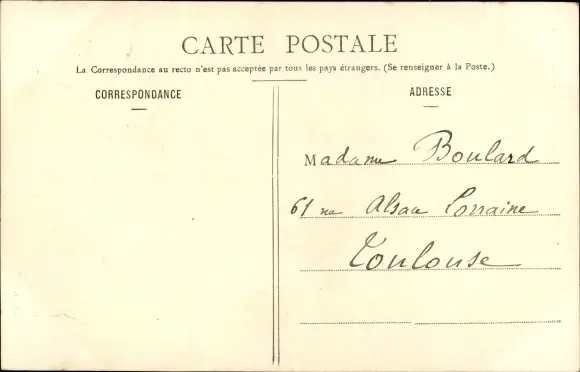 CARTE POSTALE
La Correspondance au recto n'est pas acceptée par tous les pays étrangers. (Se renseigner à la Poste.)
CORRESPONDANCE
ADRESSE
Madame Boulard
61 rue Alsace Lorraine
Toulouse